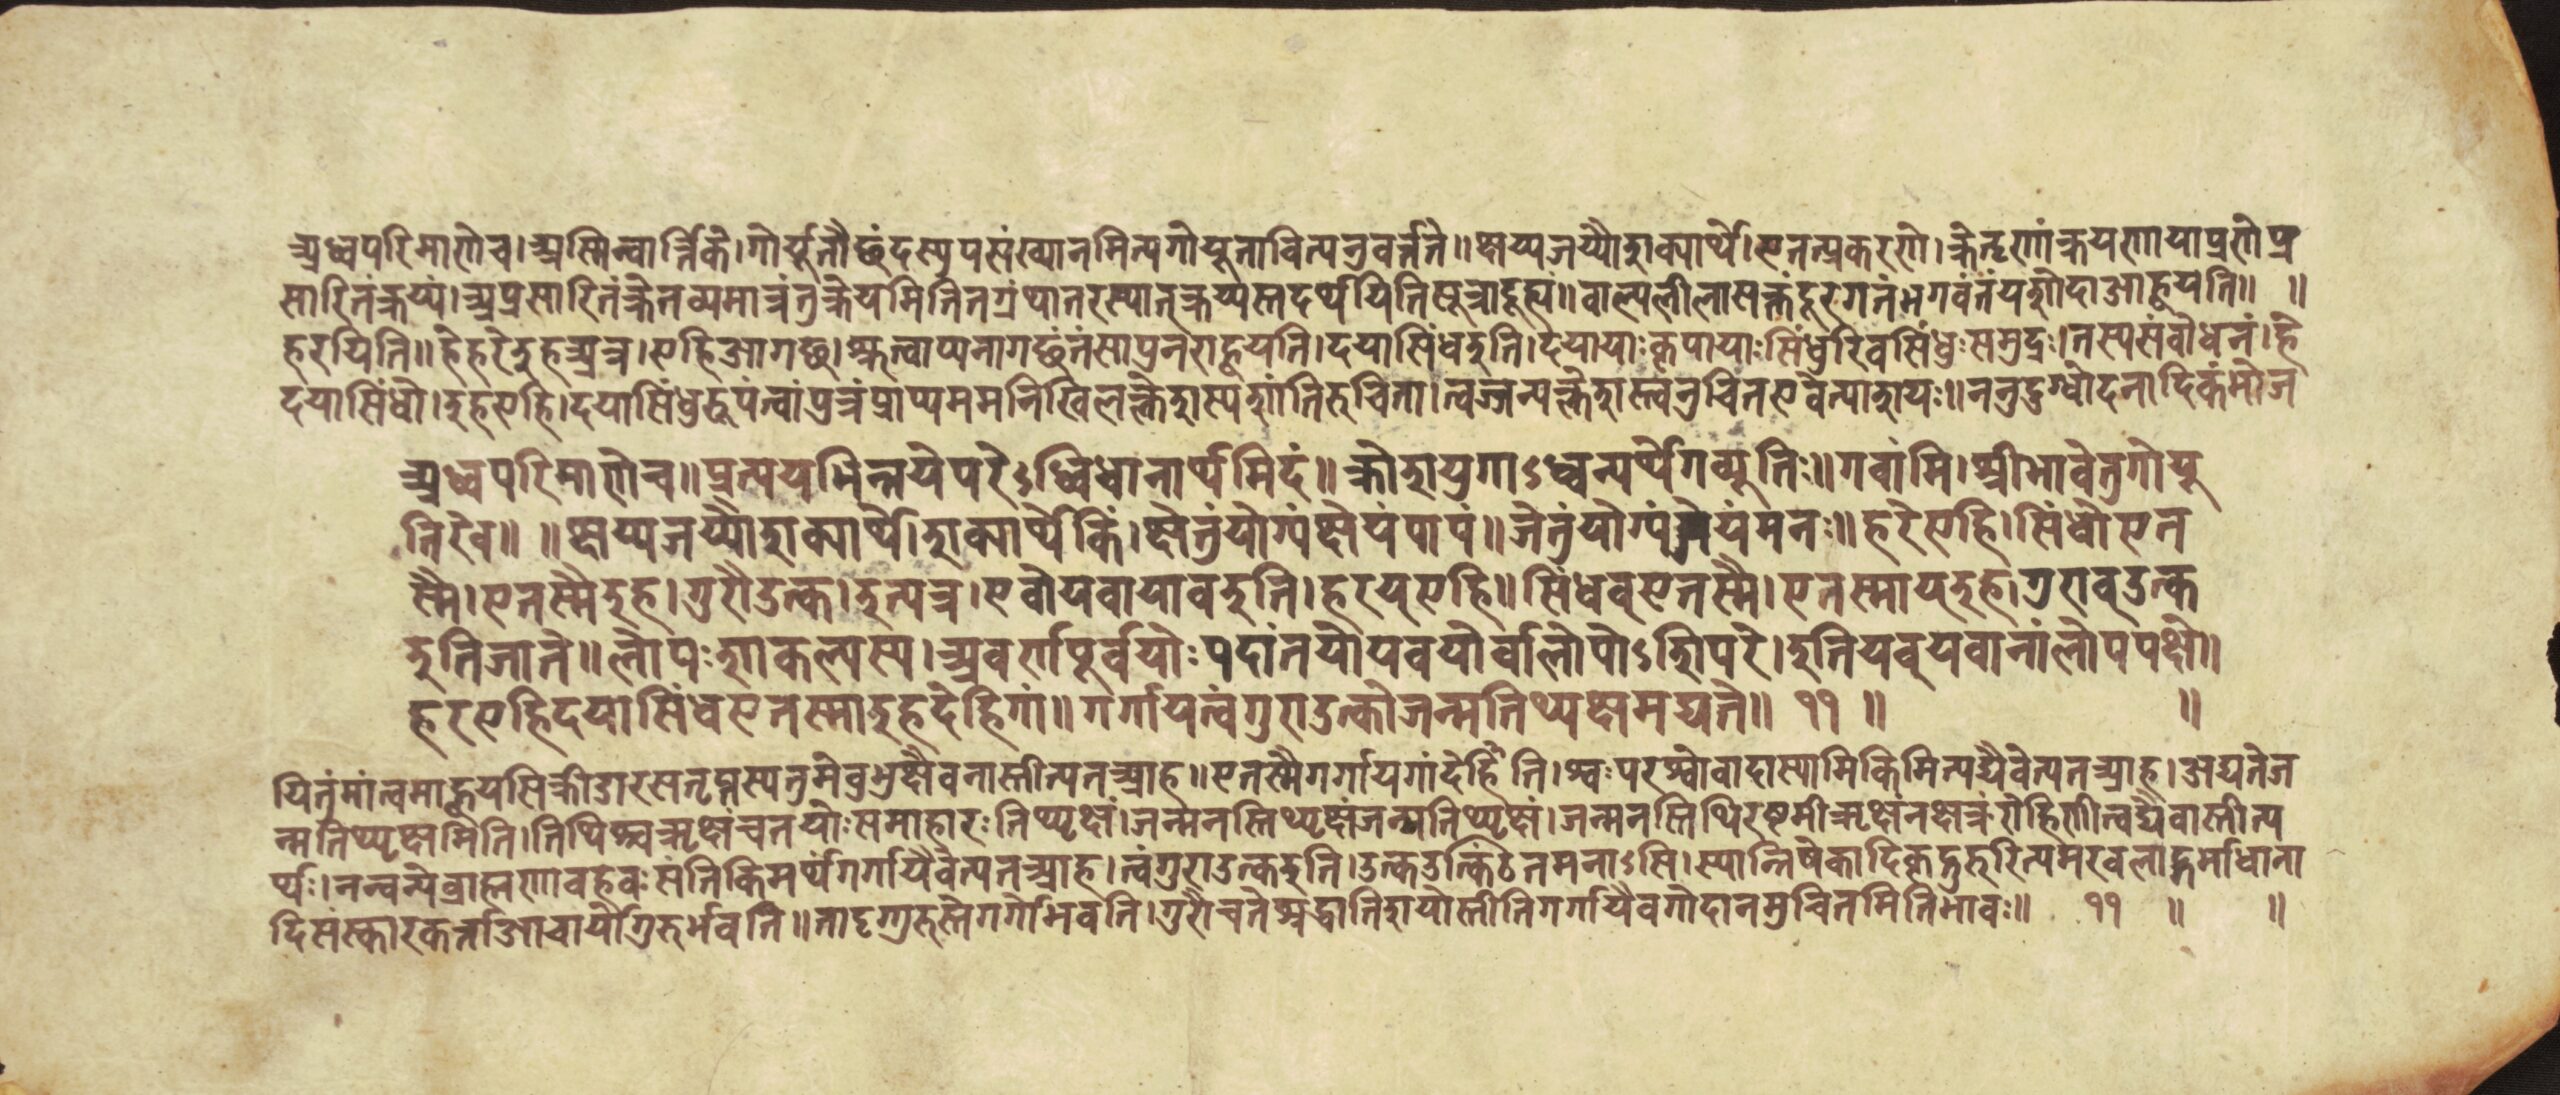 अध्वपरिमाणेच।अस्मिन्वार्त्तिके।गोर्यूतौछंदस्युपसंख्यानमित्यगोर्यूतावित्यनुवर्त्तते॥क्षय्यजय्यौशक्यार्थे।एतत्प्रकरणे।क्रेतृणांक्रयणायापणेप्र
सारितंक्रय्यं।अप्रसारितंक्रेतव्यमात्रंतुक्रेयमितितग्रंथातरस्थात्क्रय्यस्तदर्थयितिसूत्रादूह्यं॥बाल्यलीलासक्तंदूरगतंभगवंतंयशोदाआहूयति॥ ॥
हरयिति॥हेहरेइहअत्र।एहिआगच्छ।श्रुत्वाप्यनागच्छंतंसापुनराहूयति।दयासिंधइति।दयायाःकृपायाःसिंधुरिवसिंधुःसमुद्रः।तस्यसंबोधनं।हे
दयासिंधो।इहएहि।दयासिंधुरूपंत्वांपुत्रंप्राप्यममनिखिलक्लेशस्यशांतिरुचिता।त्वज्जन्यक्लेशस्त्वनुचितएवेत्याशयः॥ननुदुग्धोदनादिकंभोज
अध्वपरिमाणेच॥प्रत्ययभिन्नयेपरेऽध्विधानार्थमिदं॥क्रोशयुगाऽध्वन्यर्थेगव्यूतिः॥गवांमि।श्रीभावेतुगोयू
तिरेव॥ ॥क्षय्यजय्यौशक्यार्थे।शक्यार्थेकिं।क्षेतुंयोग्यंक्षेयंपापं॥जेतुंयोग्यंजेयंमनः॥हरेएहि।सिंधोएत
स्मै।एतस्मैइह।गुरौउत्क।इत्यत्र।एचोयवायावइति।हरय्एहि॥सिंधव्एतस्मै।एतस्माय्इह।गुराव्उत्क
इतिजाते॥लोपःशाकल्यस्य।अवर्णपूर्वयोःपदांतयोयवयोर्वालोपोऽशिपरे।इतियव्यवानांलोपपक्षे॥
हरएहिदयासिंधएतस्माइहदेहिगां॥गर्गायत्वंगुराउत्कोजन्मतिथ्यृक्षमद्यते॥ ११ ॥ ॥
यितुंमांत्वमाह्वयसिक्रीडारसतृप्तस्यतुमेबुभुक्षैवनास्तीत्यतआह॥एतस्मैगर्गायगांदेहीति।श्वःपरश्वोवादास्यामिकिमित्यद्यैवेत्यतआह।अद्यतेज
न्मतिथ्यृक्षमिति।तिथिश्चऋक्षंचतयोःसमाहारःतिथ्यृक्षं।जन्मनस्तिथ्यृक्षंजन्मतिथ्यृक्षं।जन्मनस्तिथिरष्टमीऋक्षंनक्षत्रंरोहिणीत्वद्यैवास्तीत्य
र्थः।नन्वन्येब्राह्मणाबहवःसंतिकिमर्थंगर्गायैवेत्यतआह।त्वंगुराउत्कइति।उत्कउत्कंठितमनाऽसि।स्यान्निषेकादिकृद्गुरुरित्यमरबलाद्गर्भाधाना
दिसंस्कारकर्त्ताआचार्योगुरुर्भवति॥तादृग्गुरुस्तेगर्गोभवति।गुरौचतेश्रद्धातिशयोस्तीतिगर्गायैवगोदानमुचितमितिभावः॥ ११ ॥ ॥